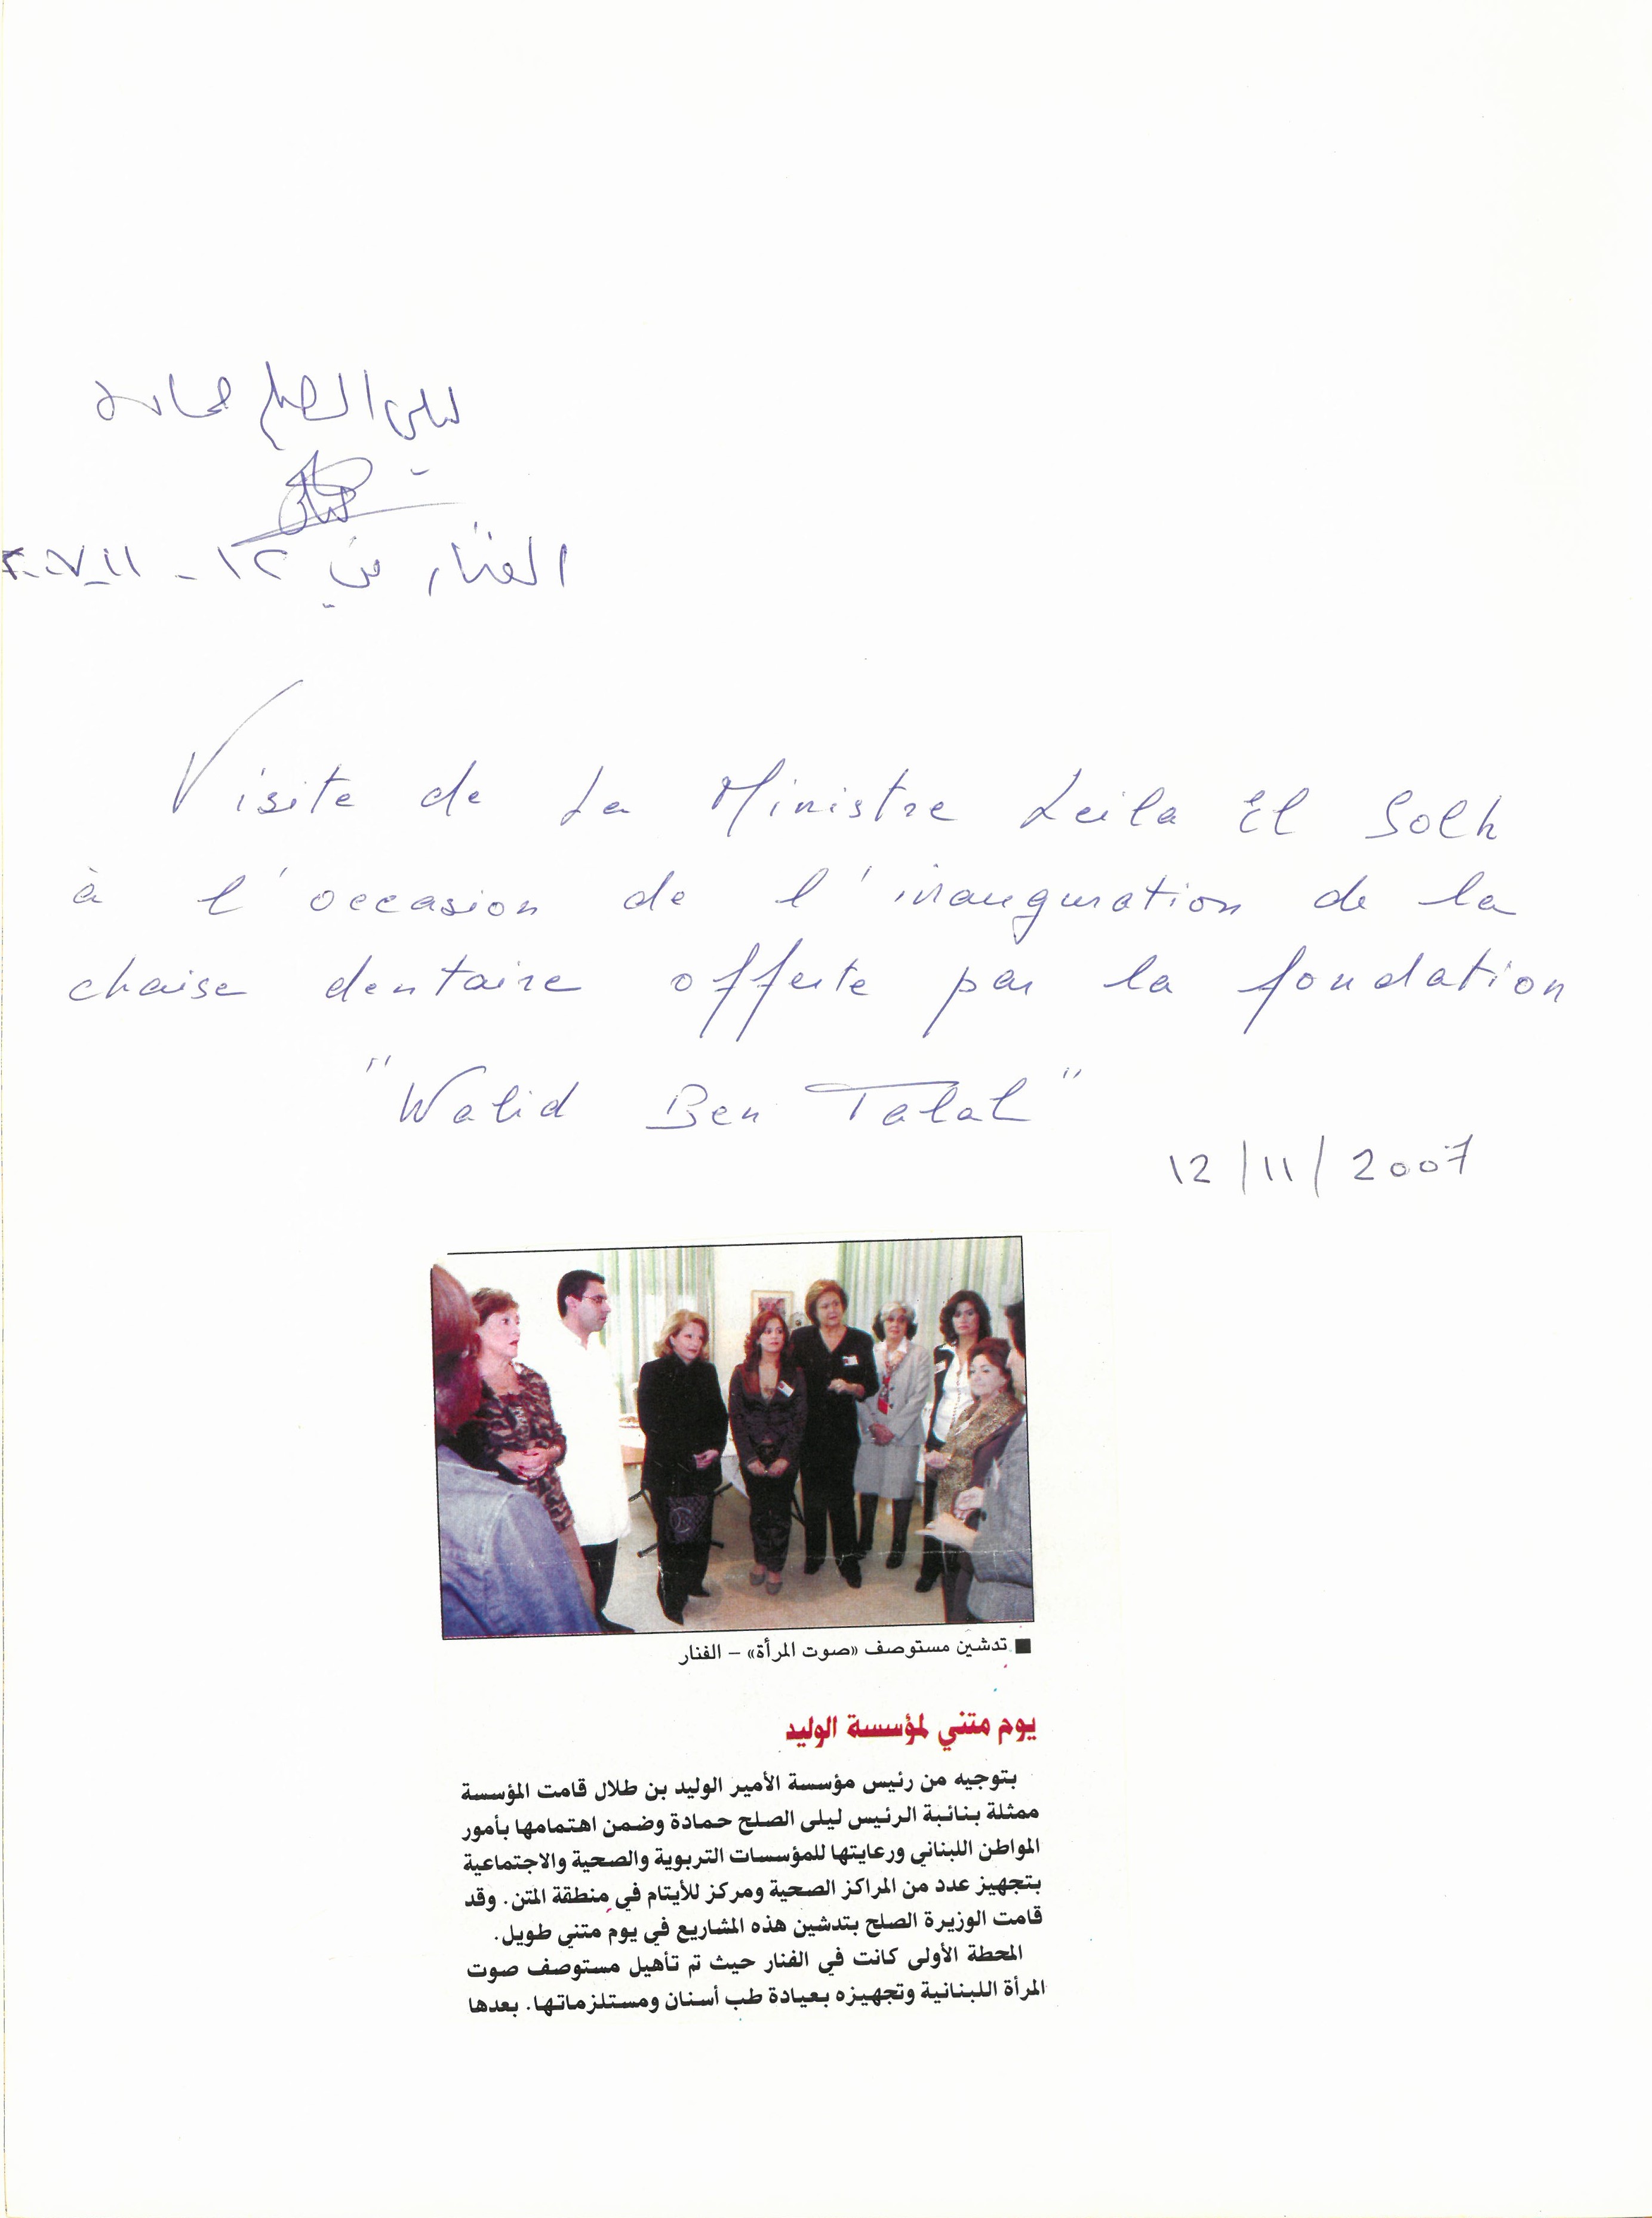 ليلى الصلح حماده
الفنار في ١٢ - ١١ - ٢٠٠٧
Visite de La Ministre Leila El Solh
à l'occasion de l'inauguration de la
chaise dentaire offerte par la fondation
"Walid Ben Talal"
12/11/2007
■ تدشين مستوصف «صوت المرأة» – الفنار
يوم متني لمؤسسة الوليد
بتوجيه من رئيس مؤسسة الأمير الوليد بن طلال قامت المؤسسة
ممثلة بنائبة الرئيس ليلى الصلح حمادة وضمن اهتمامها بأمور
المواطن اللبناني ورعايتها للمؤسسات التربوية والصحية والاجتماعية
بتجهيز عدد من المراكز الصحية ومركز للأيتام في منطقة المتن. وقد
قامت الوزيرة الصلح بتدشين هذه المشاريع في يوم متني طويل.
المحطة الأولى كانت في الفنار حيث تم تأهيل مستوصف صوت
المرأة اللبنانية وتجهيزه بعيادة طب أسنان ومستلزماتها. بعدها